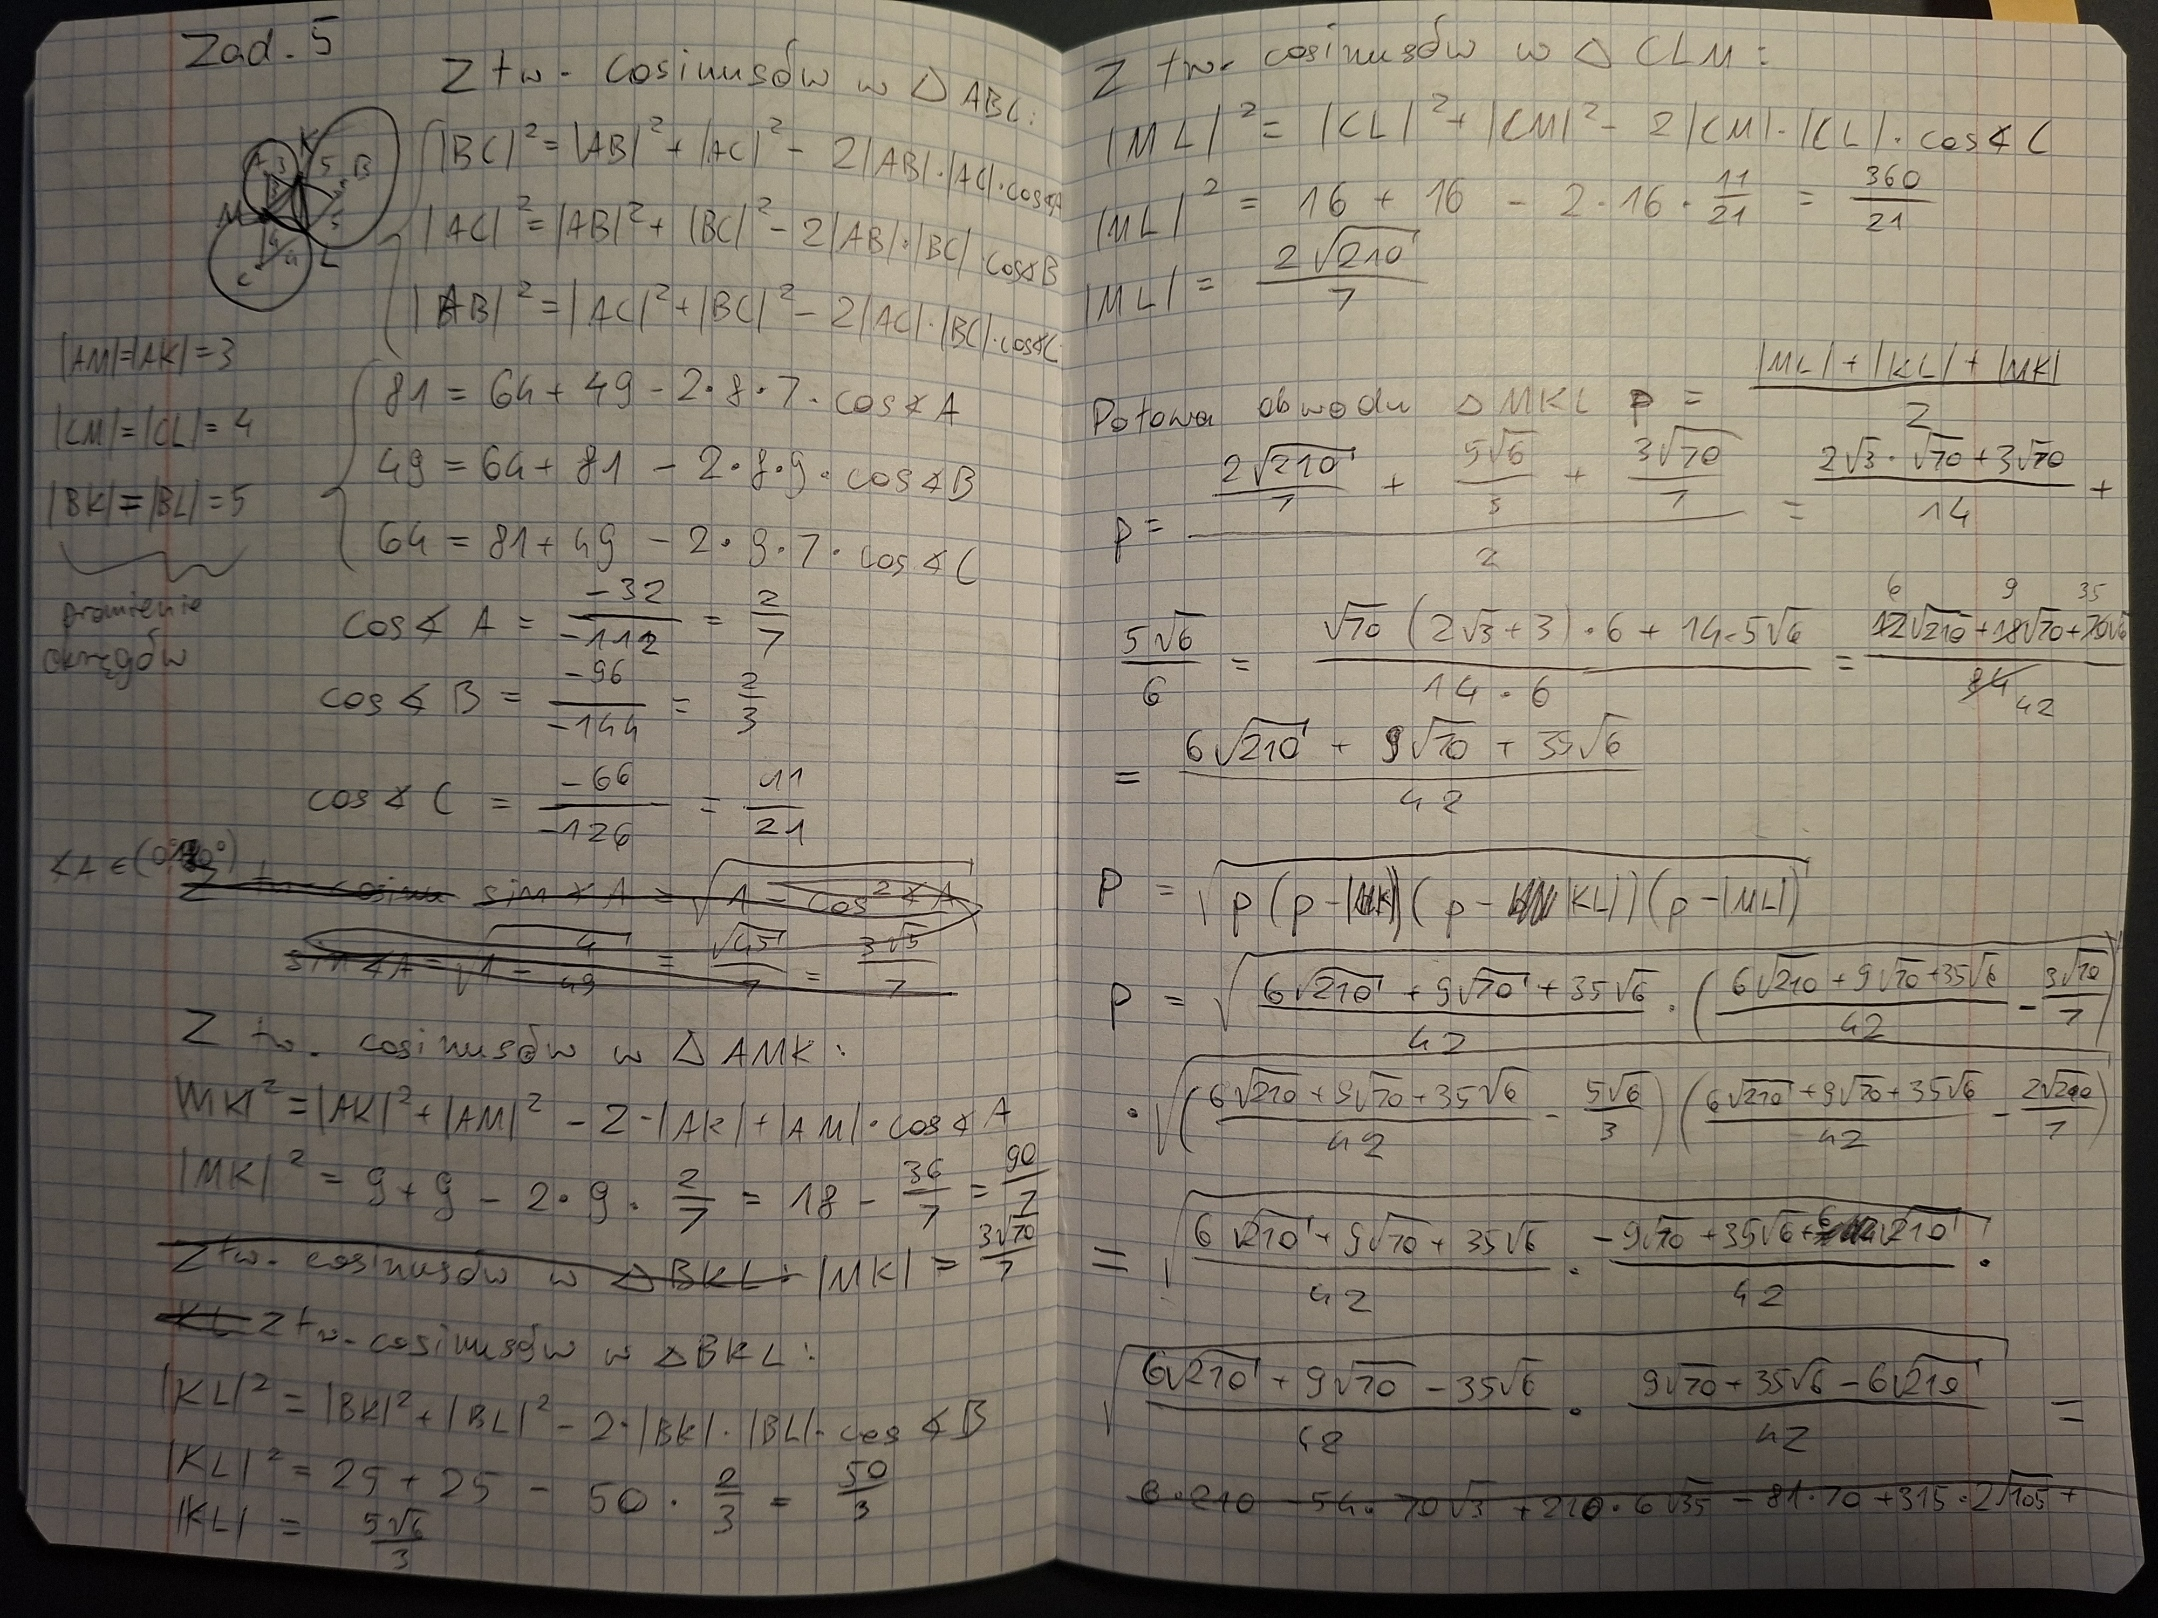 Zad. 5
Z tw. cosinusów w △ ABC:
|BC|² = |AB|² + |AC|² - 2|AB|·|AC|·cos∢A
|AC|² = |AB|² + |BC|² - 2|AB|·|BC| cos∢B
|AB|² = |AC|² + |BC|² - 2|AC|·|BC|·cos∢C
A 3 K 5 B
M 5
4 4 L
C
|AM|=|AK|=3
|CM|=|CL|=4
|BK|=|BL|=5
promienie
okręgów
81 = 64 + 49 - 2·8·7·cos∢A
49 = 64 + 81 - 2·8·9·cos∢B
64 = 81 + 49 - 2·9·7·cos∢C
cos∢A = -32/-112 = 2/7
cos∢B = -96/-144 = 2/3
cos∢C = -66/-126 = 11/21
∢A ∈ (0°,180°)
Z tw. cosinu sin∢A = √(1 - cos²∢A)
sin∢A = √(1 - 4/49) = √45/7 = 3√5/7
Z tw. cosinusów w △ AMK:
|MK|² = |AK|² + |AM|² - 2·|AK|+|AM|·cos∢A
|MK|² = 9 + 9 - 2·9·2/7 = 18 - 36/7 = 90/7
Z tw. cosinusów w △BKL: |MK| = 3√70/7
KL Z tw. cosinusów w △BKL:
|KL|² = |BK|² + |BL|² - 2·|BK|·|BL|·cos∢B
|KL|² = 25 + 25 - 50·2/3 = 50/3
|KL| = 5√6/3
Z tw. cosinusów w △ CLM:
|ML|² = |CL|² + |CM|² - 2|CM|·|CL|·cos∢C
|ML|² = 16 + 16 - 2·16·11/21 = 360/21
|ML| = 2√210/7
Połowa obwodu △MKL p = (|ML| + |KL| + |MK|)/2
p = (2√210/7 + 5√6/3 + 3√70/7)/2 = (2√3·√70 + 3√70)/14 +
5√6/6 = (√70(2√3+3)·6 + 14·5√6)/(14·6) = (12√210 + 18√70 + 70√6)/84 6 9 35 42
= (6√210 + 9√70 + 35√6)/42
P = √(p(p-|MK|)(p-|KL|)(p-|ML|))
P = √((6√210 + 9√70 + 35√6)/42 · ((6√210 + 9√70 + 35√6)/42 - 3√70/7))
·√(((6√210 + 9√70 + 35√6)/42 - 5√6/3)((6√210 + 9√70 + 35√6)/42 - 2√210/7))
= √((6√210 + 9√70 + 35√6)/42 · (-9√70 + 35√6 + 6√210)/42) ·
√((6√210 + 9√70 - 35√6)/42 · (9√70 + 35√6 - 6√210)/42) =
6·210 - 54·70√3 + 210·6√35 - 81·70 + 315·2√105 +